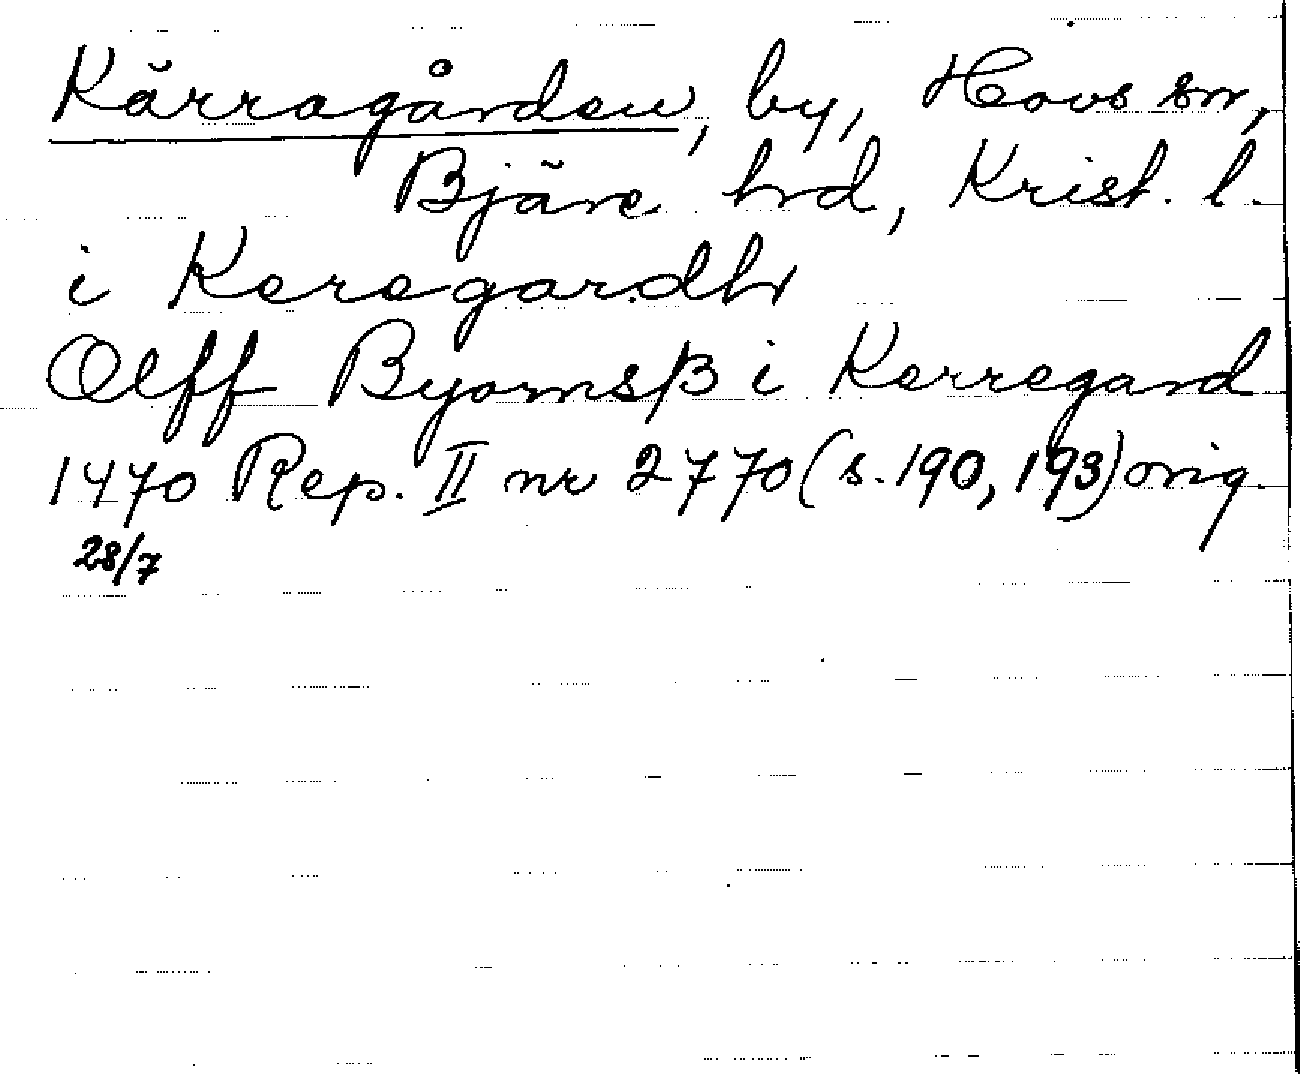 Kärragården, by, Hovs sn,
Bjäre hrd, Krist. l.
i Keregardh
Olff Byornsβ i Kerregard
1470 Rep. II nr 2770 (s. 190, 193) orig.
28/7